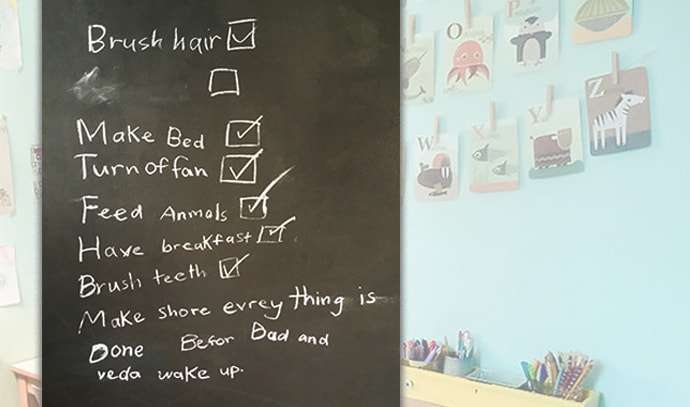 Brush hair
Make Bed
Turn of fan
Feed Anmals
Have breakfast
Brush teeth
Make shore evrey thing is
Done Befor Dad and
veda wake up.
O
P
W
X
Y
Z